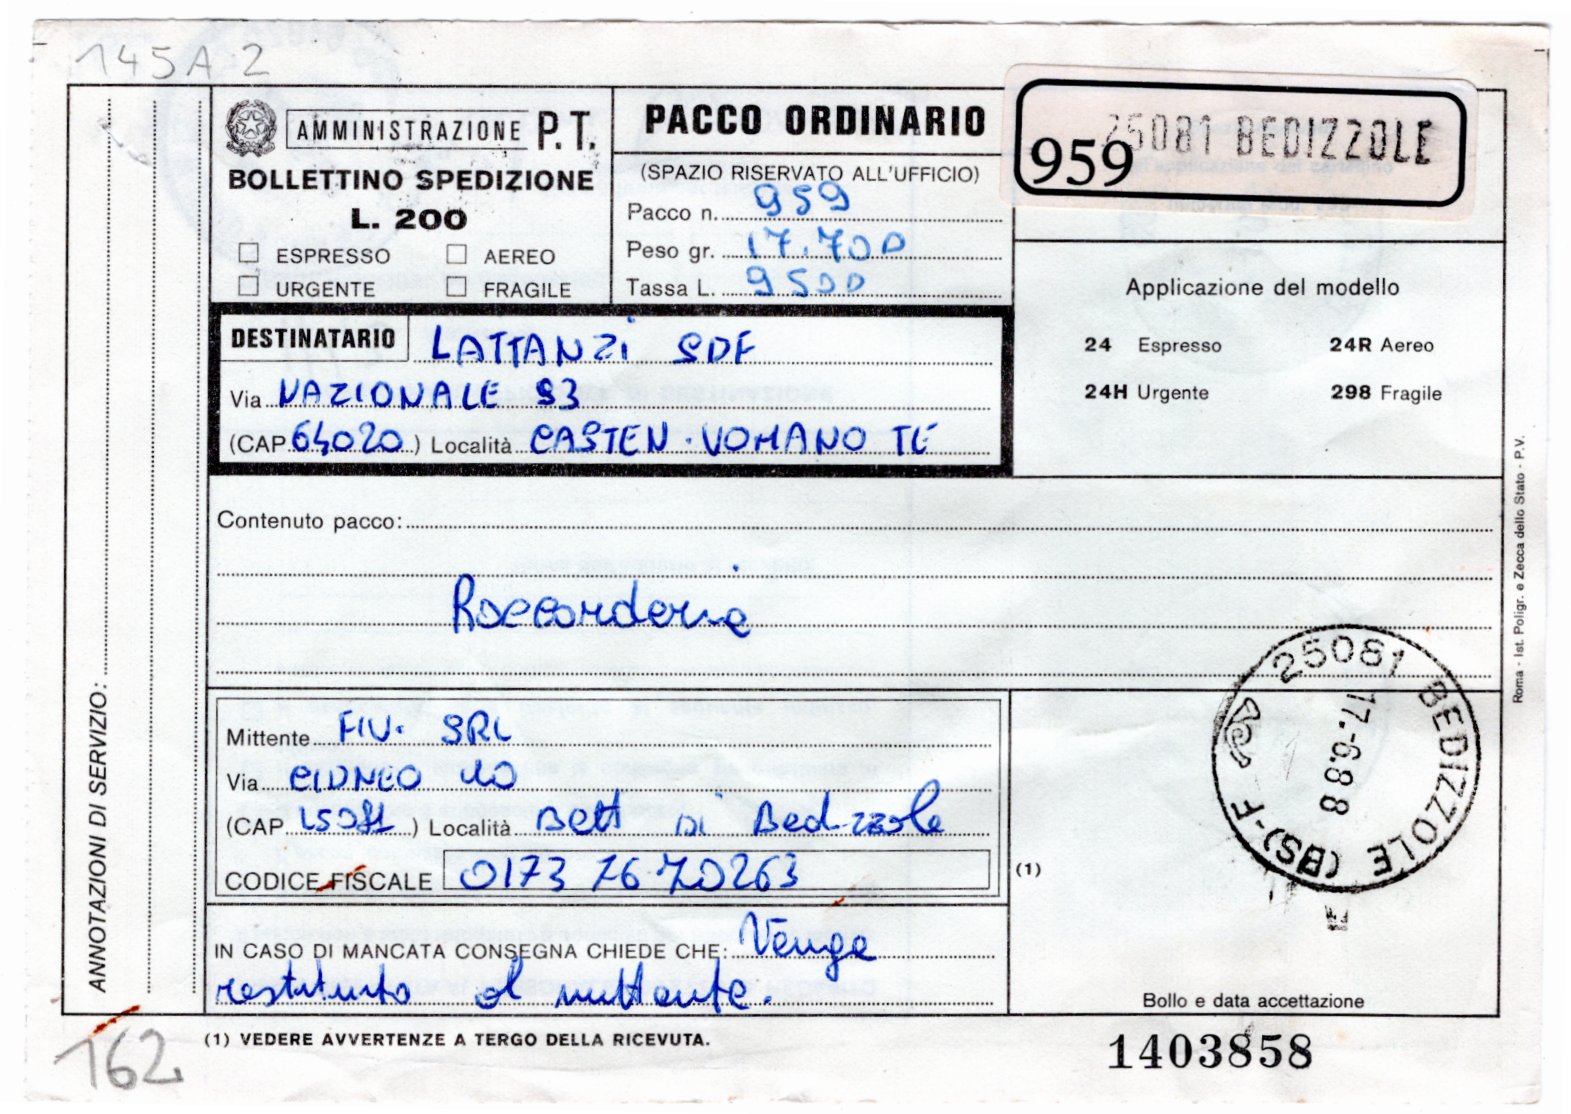 145A2
AMMINISTRAZIONE P.T.
BOLLETTINO SPEDIZIONE
L. 200
ESPRESSO AEREO
URGENTE FRAGILE
PACCO ORDINARIO
(SPAZIO RISERVATO ALL'UFFICIO)
Pacco n. 959
Peso gr. 17.700
Tassa L. 9500
959 25081 BEDIZZOLE
Applicazione del modello
24 Espresso 24R Aereo
24H Urgente 298 Fragile
DESTINATARIO LATTANZI SDF
Via NAZIONALE 93
(CAP 64020) Località CASTEN. VOMANO TE
Contenuto pacco:
Raccorderia
Mittente FIV. SRL
Via CIDNEO
(CAP 25081) Località Bett di Bedizzole
CODICE FISCALE 0173 76 70263
IN CASO DI MANCATA CONSEGNA CHIEDE CHE: Venga
restituito al mittente.
(1)
25081 BEDIZZOLE (BS)-F
17.-6.88
Bollo e data accettazione
ANNOTAZIONI DI SERVIZIO:
Roma - Ist. Poligr. e Zecca dello Stato - P.V.
162
(1) VEDERE AVVERTENZE A TERGO DELLA RICEVUTA.
1403858